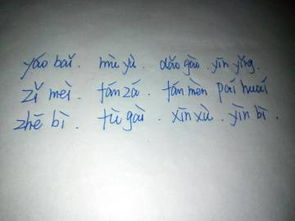 yáo bǎi. mù yù. dǎo gào. yīn yǐng
zǐ mèi. tán zá. tán mèn pái huái
zhē bì. tú gǎi. xīn xù. yǐn bì.